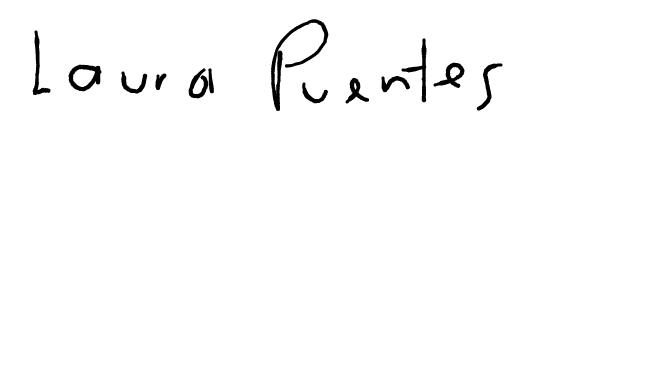 Laura Puentes